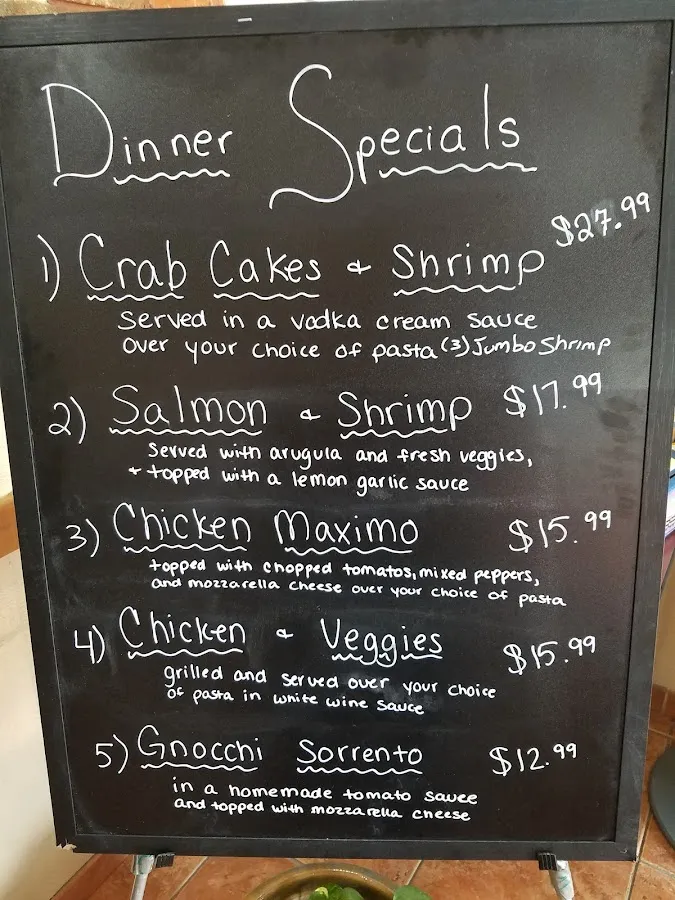 Dinner Specials
1) Crab Cakes & Shrimp $27.99
Served in a vodka cream sauce
over your choice of pasta (3) Jumbo Shrimp
2) Salmon & Shrimp $17.99
Served with arugula and fresh veggies,
+ topped with a lemon garlic sauce
3) Chicken Maximo $15.99
topped with chopped tomatos, mixed peppers,
and mozzarella cheese over your choice of pasta
4) Chicken & Veggies $15.99
grilled and served over your choice
of pasta in white wine sauce
5) Gnocchi Sorrento $12.99
in a homemade tomato sauce
and topped with mozzarella cheese